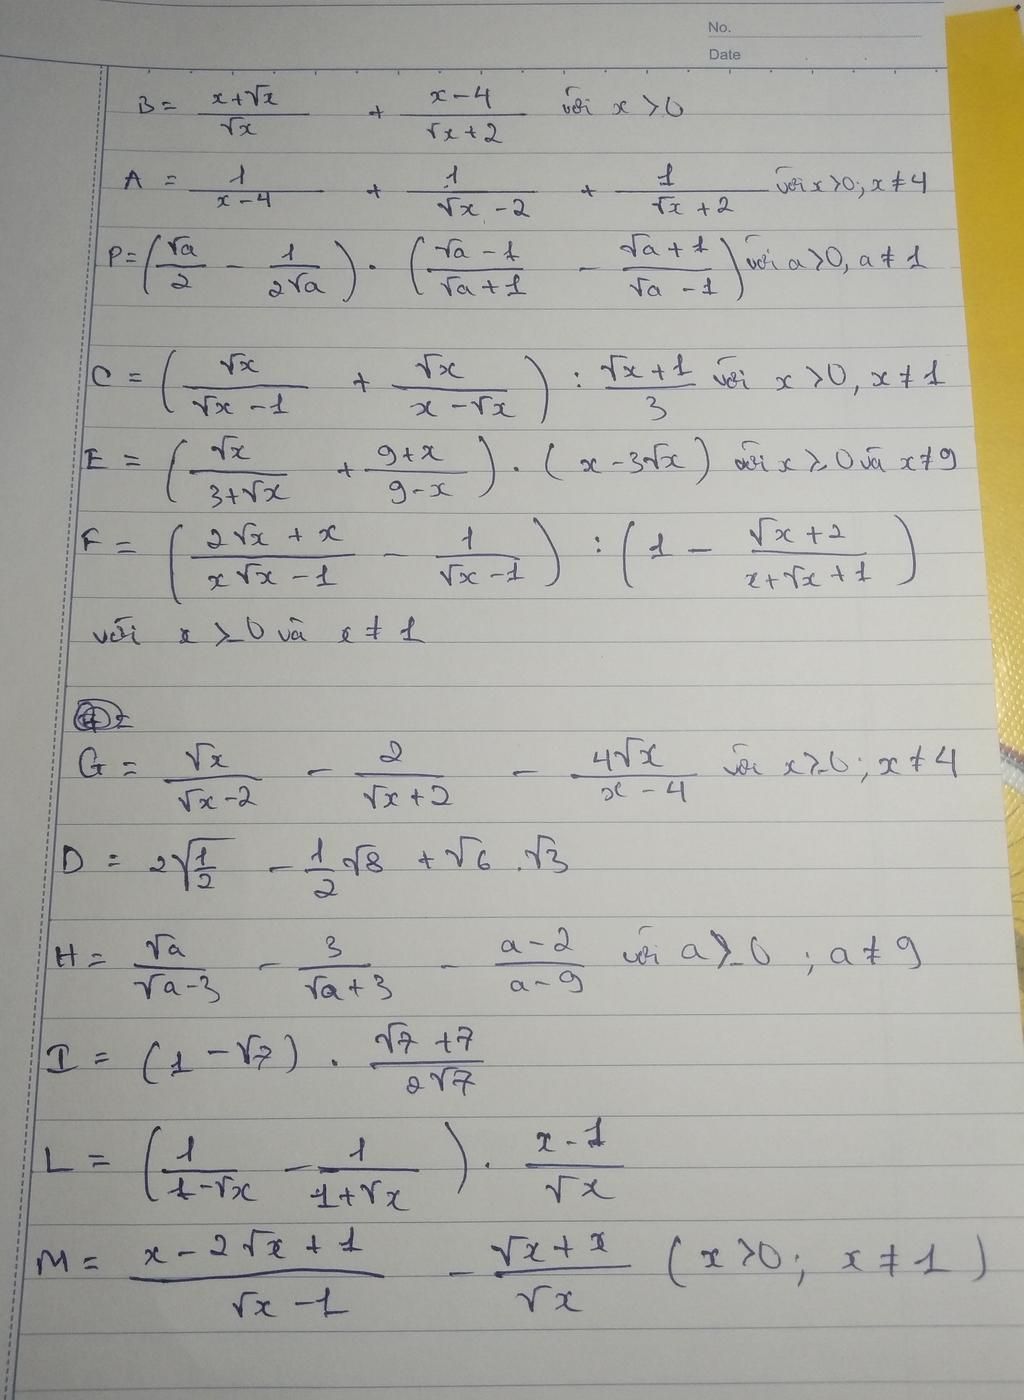 No.
Date
B = (x+√x)/√x + (x-4)/(√x+2) với x > 0
A = 1/(x-4) + 1/(√x-2) + 1/(√x+2) với x>0; x≠4
P = (√a/2 - 1/(2√a)) · ((√a-1)/(√a+1) - (√a+1)/(√a-1)) với a>0, a≠1
C = (√x/(√x-1) + √x/(x-√x)) : (√x+1)/3 với x>0, x≠1
E = (√x/(3+√x) + (9+x)/(9-x)) · (x-3√x) với x≥0 và x≠9
F = ((2√x+x)/(x√x-1) - 1/(√x-1)) : (1 - (√x+2)/(x+√x+1))
với x ≥ 0 và x ≠ 1
G = √x/(√x-2) - 2/(√x+2) - 4√x/(x-4) với x≥0; x≠4
D = 2√(1/2) - 1/2 √8 + √6 . √3
H = √a/(√a-3) - 3/(√a+3) - (a-2)/(a-9) với a≥0 ; a≠9
I = (1-√7) . (√7+7)/(2√7)
L = (1/(1-√x) - 1/(1+√x)) · (x-1)/√x
M = (x-2√x+1)/(√x-1) - (√x+x)/√x (x>0; x≠1)